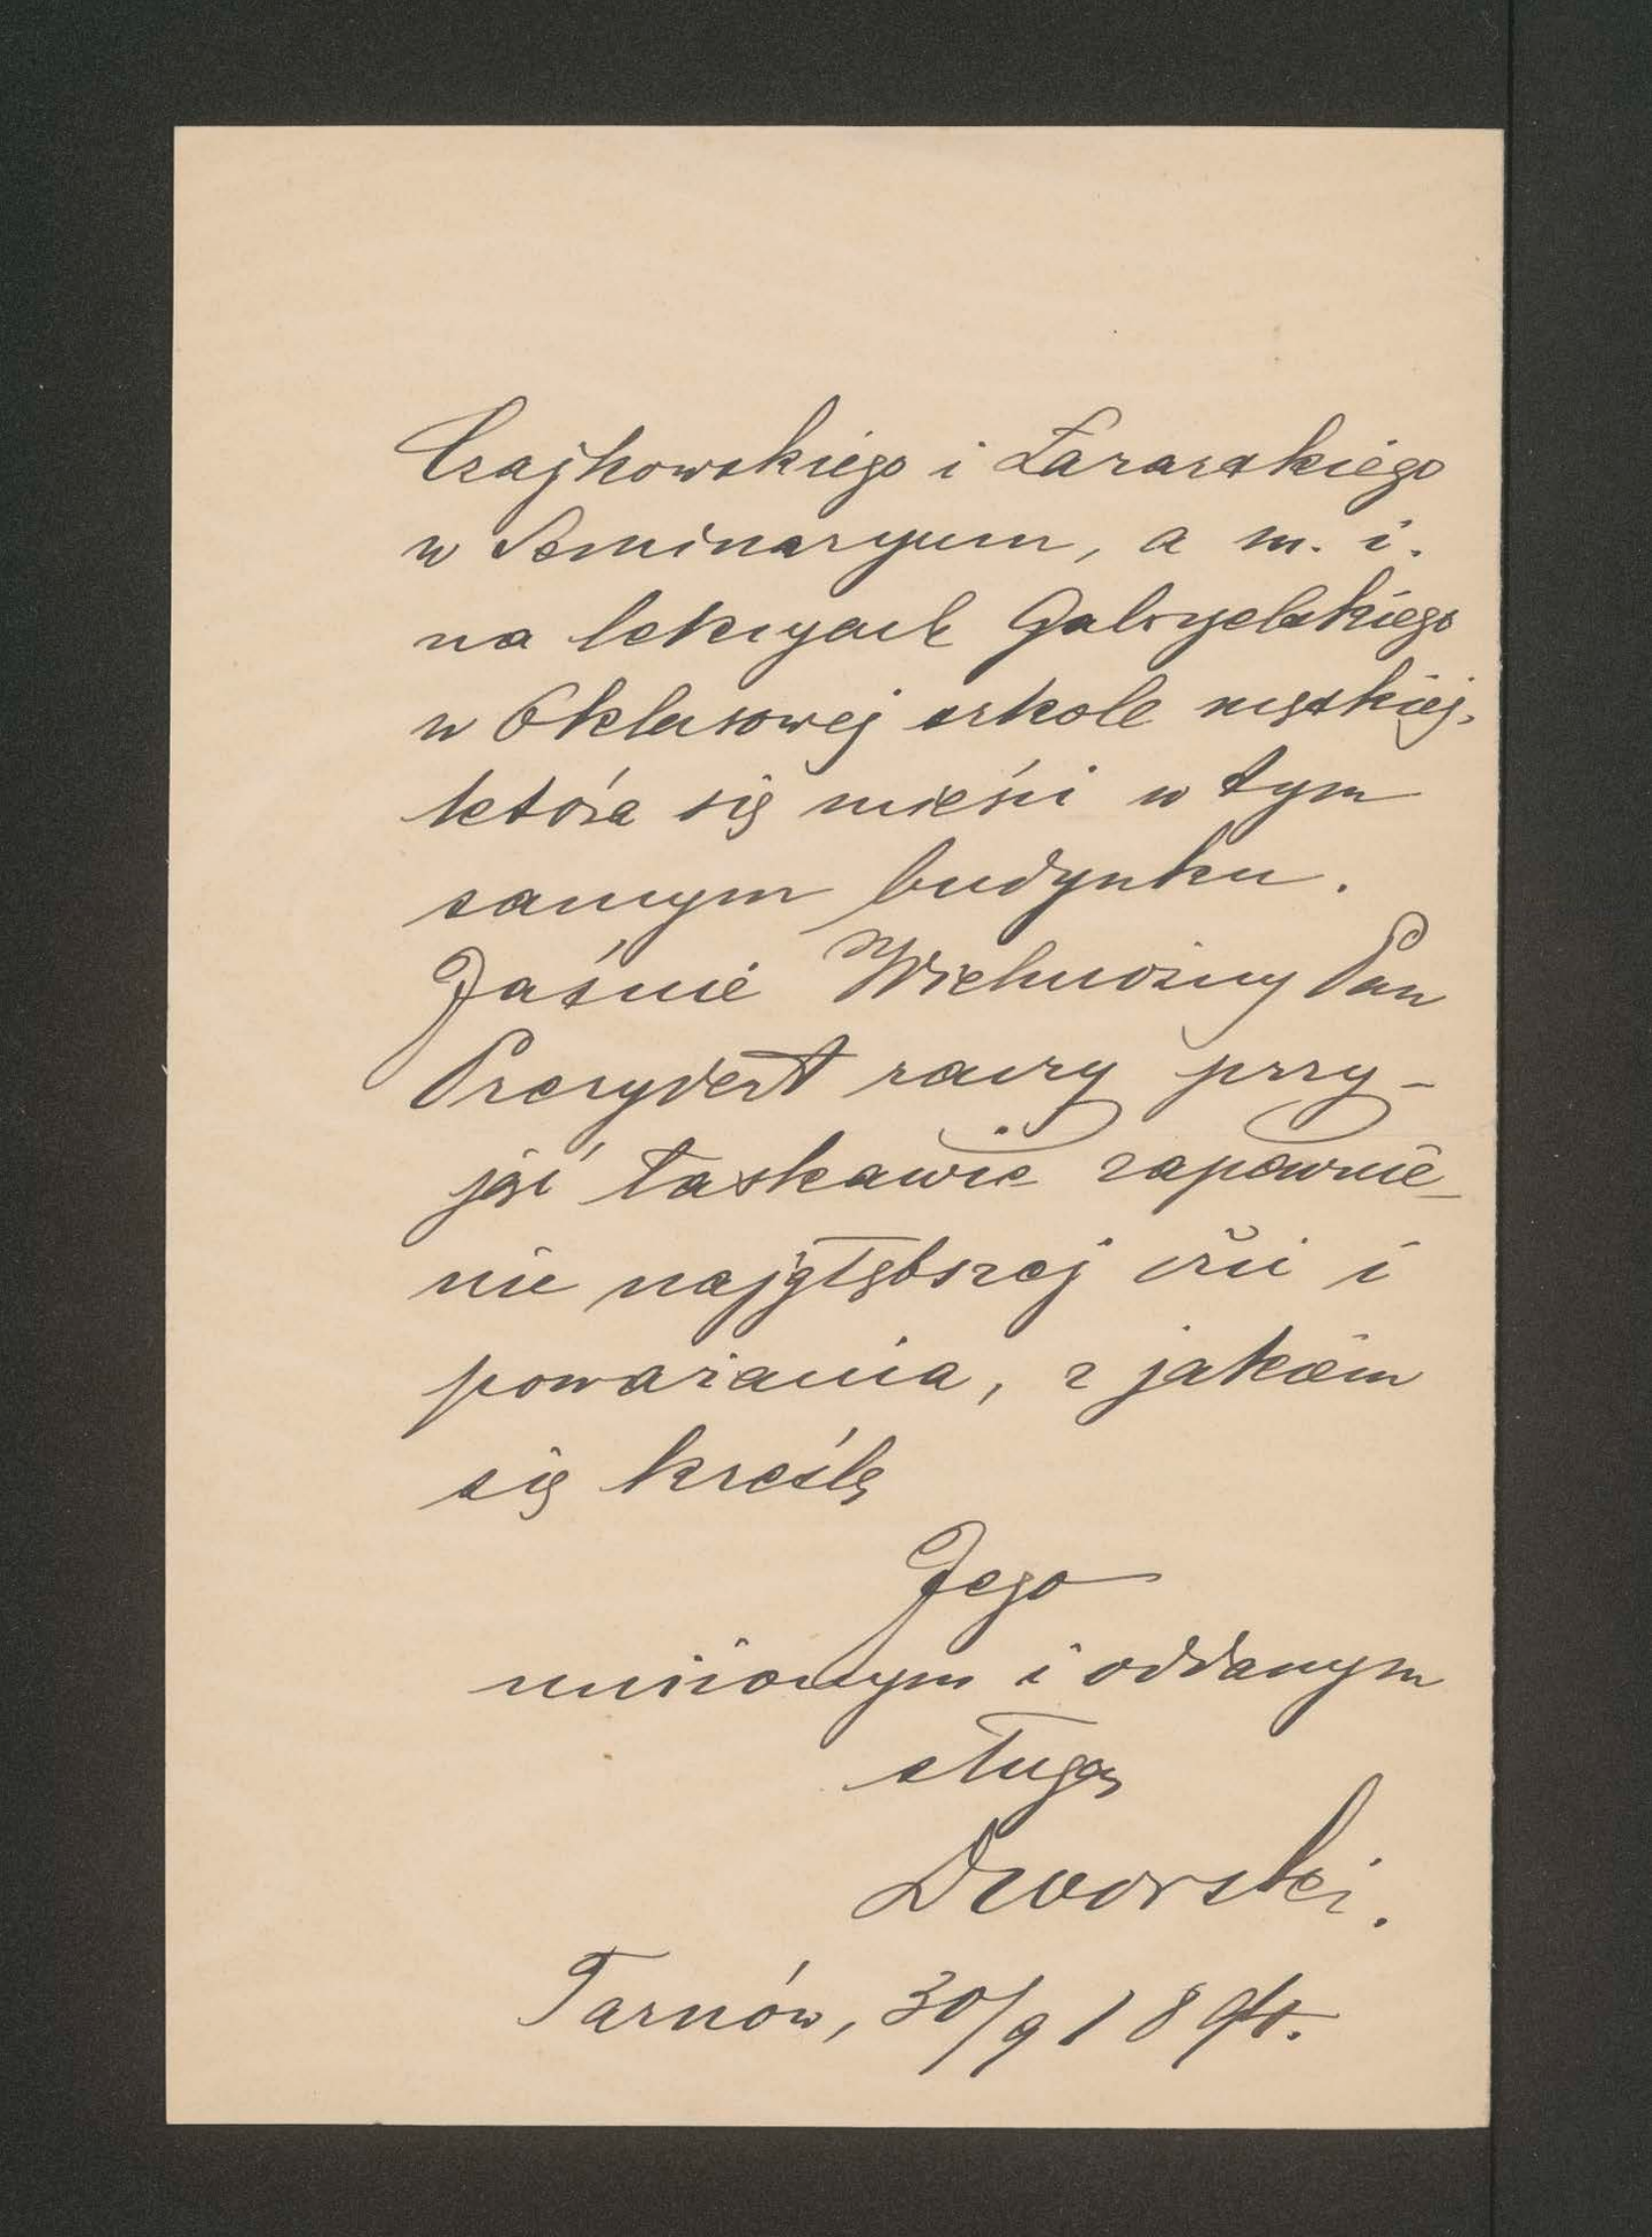 Czajkowskiego i Zaraskiego
w Seminaryum, a m. i.
na lekcyach Gabryelskiego
w 6klasowej szkole męskiej,
która się mieści w tym
samym budynku.
Jaśnie Wielmożny Pan
Prezydent raczy przy-
jąć łaskawie zapewnie-
nie najgłębszej czci i
poważania, z jakiem
się kreślę
Jego
uniżonym i oddanym
sługą
Dworski.
Tarnów, 30/9 1894.